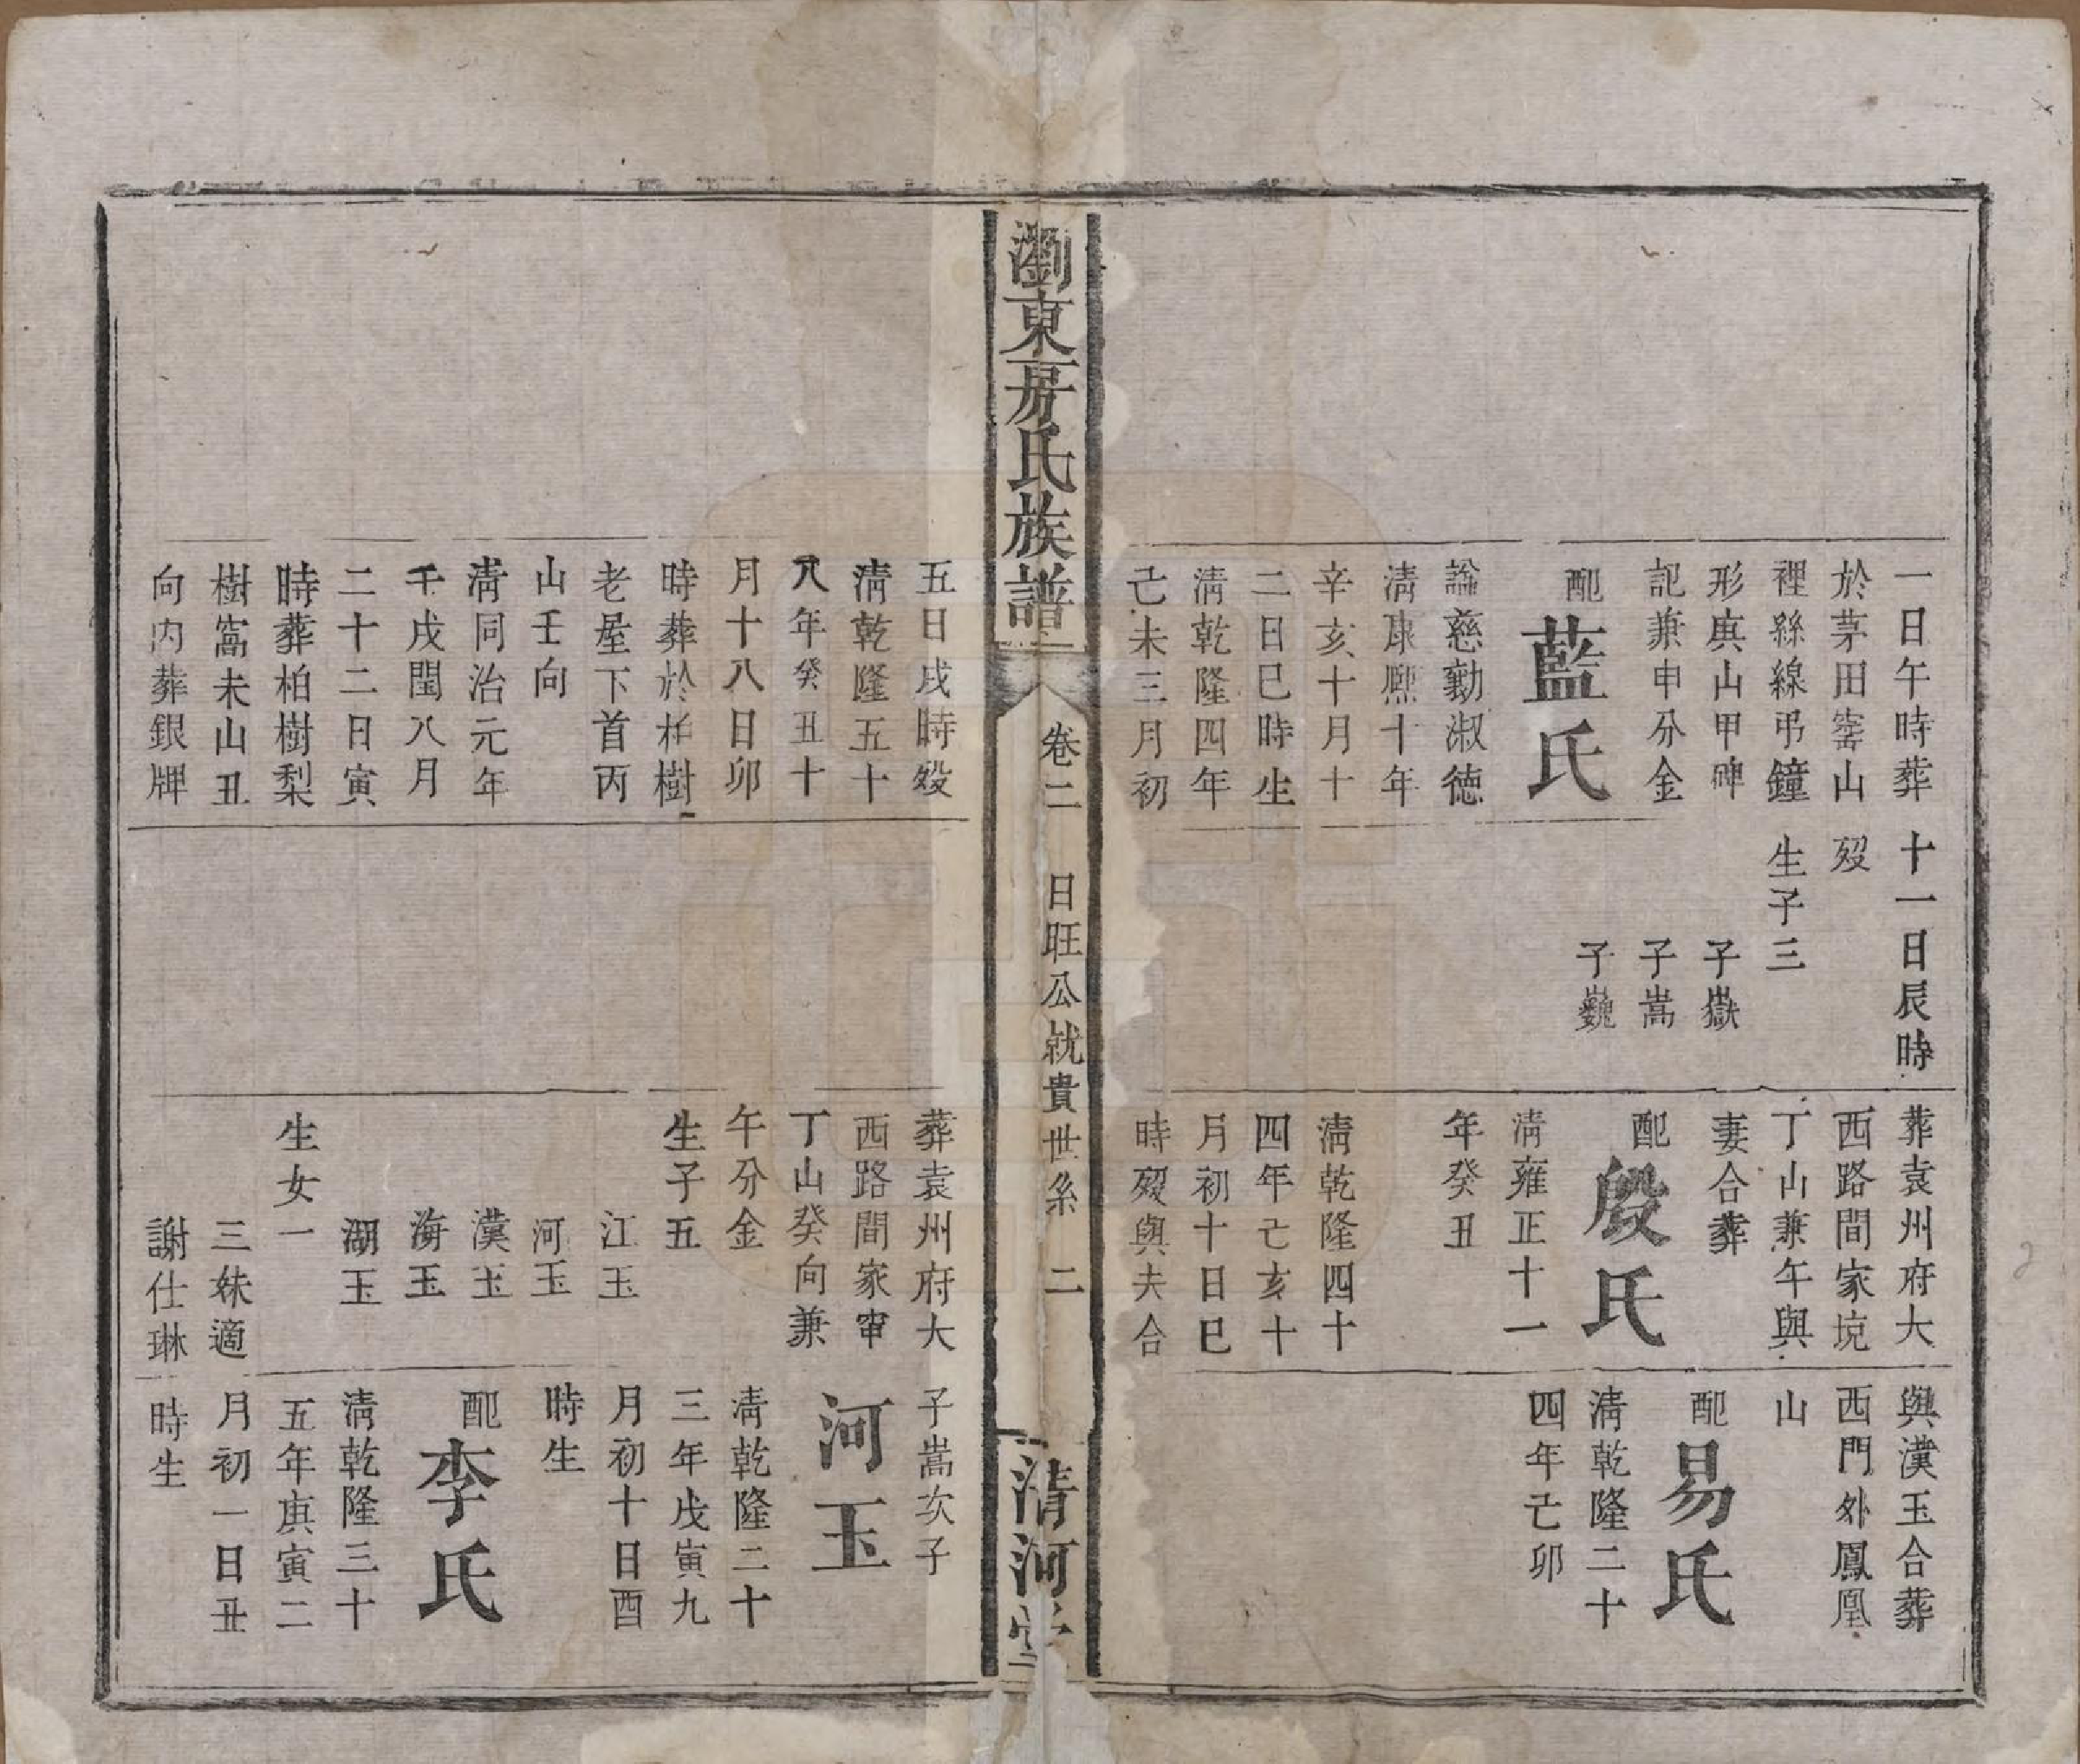 一日午時葬
於茅田窰山
裡絲線弔鐘
形庚山甲碑
記兼申分金
配
藍氏
諡慈勤淑德
淸康熙十年
辛亥十月十
二日巳時生
淸乾隆四年
己未三月初
十一日辰時
歿
生子三
子嶽
子嵩
子巍
葬袁州府大
西路間家境
丁山兼午與
妻合葬
配
殷氏
淸雍正十一
年癸丑
淸乾隆四十
四年己亥十
月初十日巳
時歿與夫合
與漢玉合葬
西門外鳳凰
山
配
易氏
淸乾隆二十
四年己卯
瀏東房氏族譜
卷二
日旺公就貴世系
二
清河堂
五日戌時歿
淸乾隆五十
八年癸丑十
月十八日卯
時葬於柏樹
老屋下首丙
山壬向
淸同治元年
壬戌閏八月
二十二日寅
時葬柏樹梨
樹窩未山丑
向內葬銀牌
葬袁州府大
西路間家
丁山癸向兼
午分金
生子五
江玉
河玉
漢玉
海玉
湖玉
生女一
三妹適
謝仕琳
子嵩次子
河玉
淸乾隆二十
三年戊寅九
月初十日酉
時生
配
李氏
淸乾隆三十
五年庚寅二
月初一日丑
時生